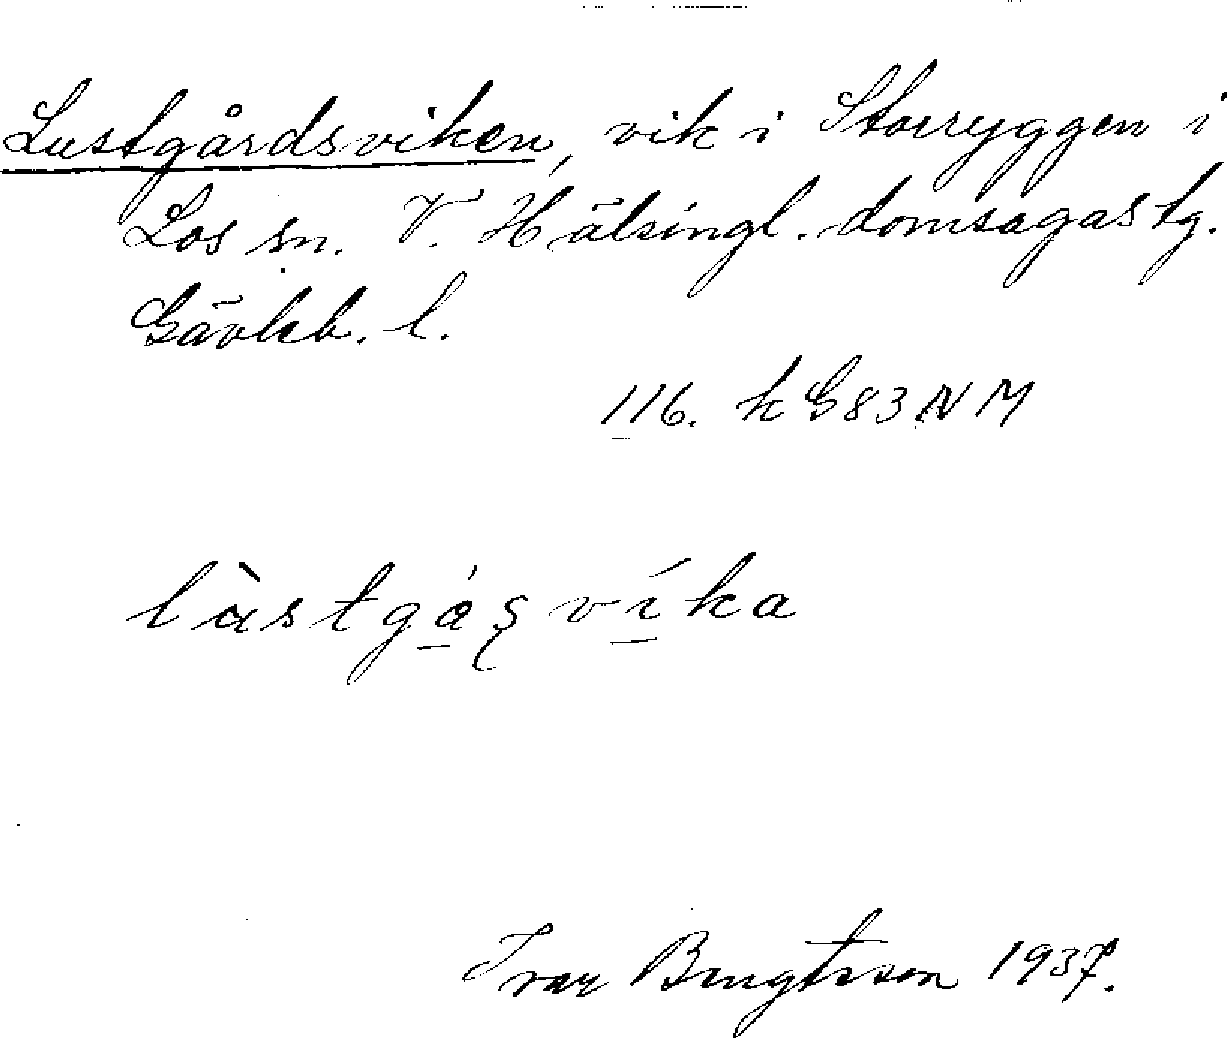 Lustgårdsviken, vik i Storryggen i
Los sn. V. Hälsingl. domsagas tg.
Gävleb. l.
116. k G83 NM
Ivar Bengtsson 1937.